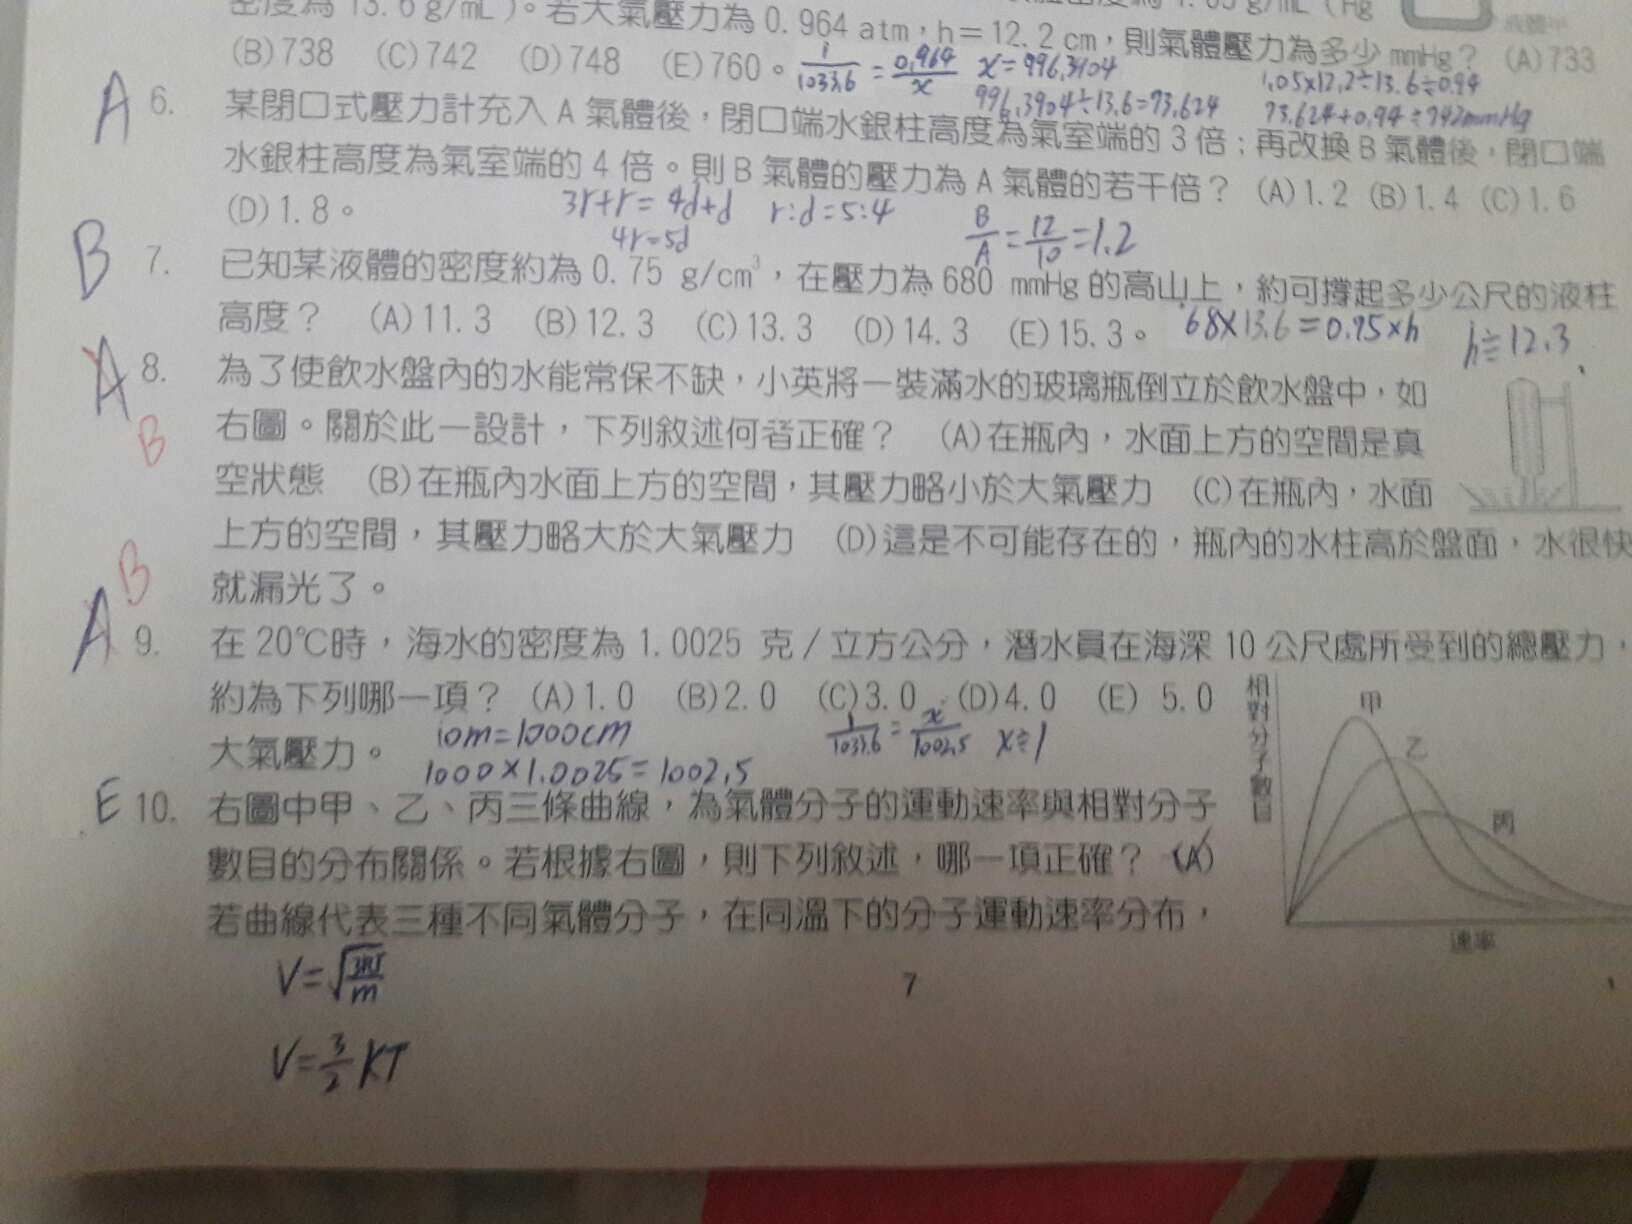 密度為 13.6 g/mL)。若大氣壓力為 0.964 atm,h=12.2 cm,則氣體壓力為多少 mmHg? (A)733
(B)738 (C)742 (D)748 (E)760。
1/1033.6 = 0.964/x x=996.3904
996.3904÷13.6=73.624
1.05×12.2÷13.6≒0.94
73.624+0.94≒742mmHg
A 6. 某閉口式壓力計充入 A 氣體後,閉口端水銀柱高度為氣室端的 3 倍;再改換 B 氣體後,閉口端
水銀柱高度為氣室端的 4 倍。則 B 氣體的壓力為 A 氣體的若干倍? (A)1.2 (B)1.4 (C)1.6
(D)1.8。
3r+r=4d+d r:d=5:4
4r=5d
B/A=12/10=1.2
B 7. 已知某液體的密度約為 0.75 g/cm³,在壓力為 680 mmHg 的高山上,約可撐起多少公尺的液柱
高度? (A)11.3 (B)12.3 (C)13.3 (D)14.3 (E)15.3。
68×13.6=0.75×h h≒12.3
A 8. 為了使飲水盤內的水能常保不缺,小英將一裝滿水的玻璃瓶倒立於飲水盤中,如
B 右圖。關於此一設計,下列敘述何者正確? (A)在瓶內,水面上方的空間是真
空狀態 (B)在瓶內水面上方的空間,其壓力略小於大氣壓力 (C)在瓶內,水面
上方的空間,其壓力略大於大氣壓力 (D)這是不可能存在的,瓶內的水柱高於盤面,水很快
就漏光了。
B
A 9. 在 20℃時,海水的密度為 1.0025 克/立方公分,潛水員在海深 10 公尺處所受到的總壓力,
約為下列哪一項? (A)1.0 (B)2.0 (C)3.0 (D)4.0 (E) 5.0
大氣壓力。
10m=1000cm
1000×1.0025=1002.5
1/1033.6=x/1002.5 x≒1
E 10. 右圖中甲、乙、丙三條曲線,為氣體分子的運動速率與相對分子
數目的分布關係。若根據右圖,則下列敘述,哪一項正確? (A)
若曲線代表三種不同氣體分子,在同溫下的分子運動速率分布,
相對分子數目
甲
乙
丙
速率
V=√3RT/m
V=3/2KT
7